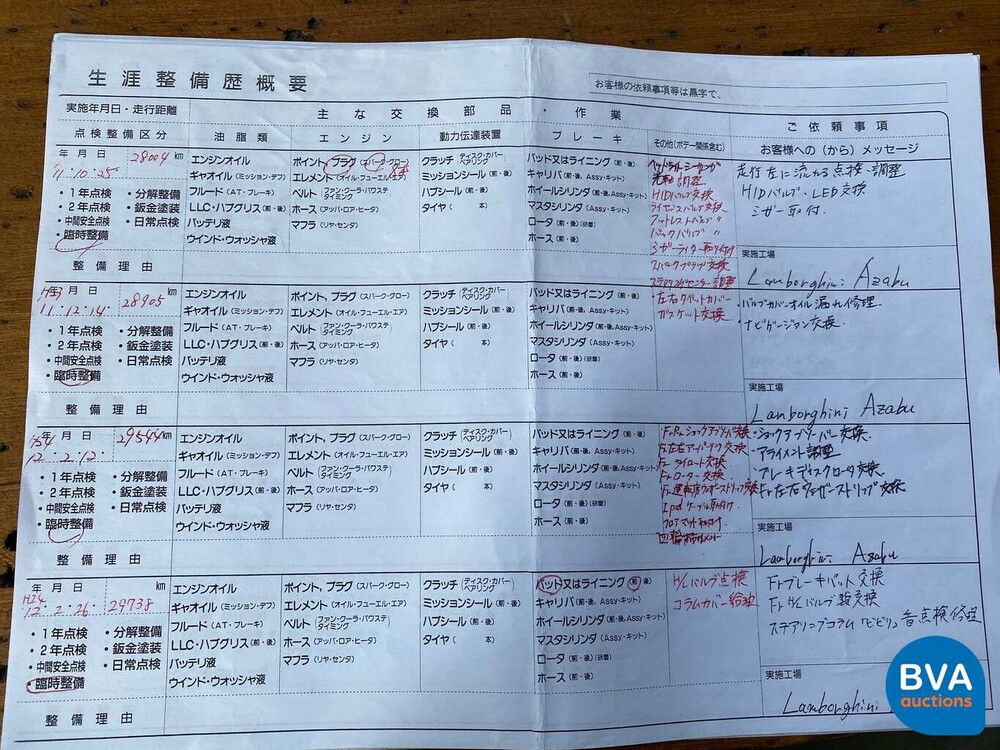 生涯整備歴概要
お客様の依頼事項等は黒字で、
実施年月日・走行距離
主な交換部品・作業
ご依頼事項
点検整備区分
油脂類
エンジン
動力伝達装置
ブレーキ
その他(ボデー関係含む)
お客様への(から)メッセージ
年月日
28004 km
11.10.25
・1年点検 ・分解整備
・2年点検 ・鈑金塗装
・中間安全点検 ・日常点検
・臨時整備
整備理由
エンジンオイル
ギャオイル(ミッション・デフ)
フルード(AT・ブレーキ)
LLC・ハブグリス(前・後)
バッテリ液
ウインド・ウォッシャ液
ポイント、プラグ(スパーク・グロー)
エレメント(オイル・フューエル・エア)
ベルト(ファン・クーラ・パワステ タイミング)
ホース(アッパ・ロア・ヒータ)
マフラ(リヤ・センタ)
クラッチ(ディスク・カバー ベアリング)
ミッションシール(前・後)
ハブシール(前・後)
タイヤ( 本)
パッド又はライニング(前・後)
キャリパ(前・後、Assy・キット)
ホイールシリンダ(前・後、Assy・キット)
マスタシリンダ(Assy・キット)
ロータ(前・後)(研磨)
ホース(前・後)
光軸調整
HIDバルブ交換
ライセンスバルブ交換
フットレストバルブ 〃
バックバルブ 〃
シガーライター取り付け
スパークプラグ交換
走行左に流れる点検・調整
HIDバルブ・LED交換
シガー取付.
実施工場
Lamborghini Azabu
年月日
28905 km
11.12.14
・1年点検 ・分解整備
・2年点検 ・鈑金塗装
・中間安全点検 ・日常点検
・臨時整備
整備理由
エンジンオイル
ギャオイル(ミッション・デフ)
フルード(AT・ブレーキ)
LLC・ハブグリス(前・後)
バッテリ液
ウインド・ウォッシャ液
ポイント、プラグ(スパーク・グロー)
エレメント(オイル・フューエル・エア)
ベルト(ファン・クーラ・パワステ タイミング)
ホース(アッパ・ロア・ヒータ)
マフラ(リヤ・センタ)
クラッチ(ディスク・カバー ベアリング)
ミッションシール(前・後)
ハブシール(前・後)
タイヤ( 本)
パッド又はライニング(前・後)
キャリパ(前・後、Assy・キット)
ホイールシリンダ(前・後、Assy・キット)
マスタシリンダ(Assy・キット)
ロータ(前・後)(研磨)
ホース(前・後)
・左右タペットカバー
ガスケット交換
・バルブカバーオイル漏れ修理.
・ナビゲーション交換
実施工場
Lamborghini Azabu
年月日
29544 km
12.2.12.
・1年点検 ・分解整備
・2年点検 ・鈑金塗装
・中間安全点検 ・日常点検
・臨時整備
整備理由
エンジンオイル
ギャオイル(ミッション・デフ)
フルード(AT・ブレーキ)
LLC・ハブグリス(前・後)
バッテリ液
ウインド・ウォッシャ液
ポイント、プラグ(スパーク・グロー)
エレメント(オイル・フューエル・エア)
ベルト(ファン・クーラ・パワステ タイミング)
ホース(アッパ・ロア・ヒータ)
マフラ(リヤ・センタ)
クラッチ(ディスク・カバー ベアリング)
ミッションシール(前・後)
ハブシール(前・後)
タイヤ( 本)
パッド又はライニング(前・後)
キャリパ(前・後、Assy・キット)
ホイールシリンダ(前・後、Assy・キット)
マスタシリンダ(Assy・キット)
ロータ(前・後)(研磨)
ホース(前・後)
Fr タイロット交換
Fr ローター交換
フロアマット取付け
・ショックアブソーバー交換.
・アライメント調整
・ブレーキディスクロータ交換.
・Fr左右ウェザーストリップ交換
実施工場
Lamborghini Azabu
年月日
H24
29738 km
12.2.26.
・1年点検 ・分解整備
・2年点検 ・鈑金塗装
・中間安全点検 ・日常点検
・臨時整備
整備理由
エンジンオイル
ギャオイル(ミッション・デフ)
フルード(AT・ブレーキ)
LLC・ハブグリス(前・後)
バッテリ液
ウインド・ウォッシャ液
ポイント、プラグ(スパーク・グロー)
エレメント(オイル・フューエル・エア)
ベルト(ファン・クーラ・パワステ タイミング)
ホース(アッパ・ロア・ヒータ)
マフラ(リヤ・センタ)
クラッチ(ディスク・カバー ベアリング)
ミッションシール(前・後)
ハブシール(前・後)
タイヤ( 本)
パッド又はライニング(前・後)
キャリパ(前・後、Assy・キット)
ホイールシリンダ(前・後、Assy・キット)
マスタシリンダ(Assy・キット)
ロータ(前・後)(研磨)
ホース(前・後)
H/Lバルブ点検
コラムカバー給油
Frブレーキパット交換
Fr H/Lバルブ点交換
ステアリングコラム「ビビリ」音点検修理
実施工場
Lamborghini
BVA
auctions